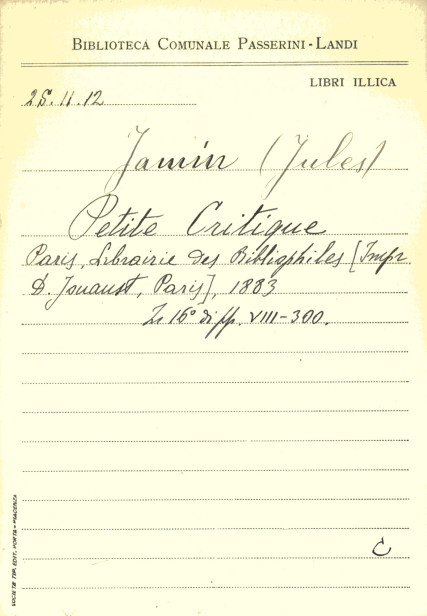 BIBLIOTECA COMUNALE PASSERINI-LANDI
LIBRI ILLICA
2S.11.12
Jamin (Jules)
Petite Critique
Paris, Librairie des Bibliophiles [Impr
D. Jouaust, Paris], 1883
In 16° di pp. VIII-300.
C
SOCIETÀ TIP. EDIT. PORTA - PIACENZA